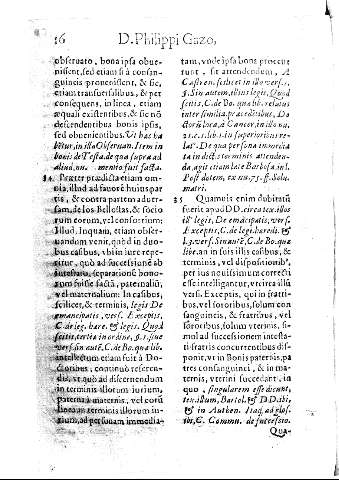 16 D. Philippi Gazo,
obseruato, bona ipsa obue-
nissent, sed etiam si à consan-
guineis prouenissent, & sic,
etiam transuersalibus, & per
consequens, in linea, etiam
æquali existentibus, & sic nõ
descendentibus bonis ipsis,
sed obuenientibus. Vt hæc ha
bẽtur, in illa Obseruan. Item in
bonis de Testa. de qua supra ad
aliud, nu. memìo fuit facta.
34 Præter prædicta etiam om
nia, illud ad fauorẽ huius par
tis, & contra partem aduer-
sam, de los Bellostas, & socio
rum eorum, vel consortium:
Illud, Inquam, etiam obser-
uandum venit, quòd in duo-
bus casibus, vbi in iure repe-
ritur, quò ad successionẽ ab
intestato, separationẽ bono-
rum fuisse factã, paternaliũ,
vel maternalium: In casibus,
scilicet, & terminis, legis De
emancipatis, vers. Exceptis,
C. de leg. hære. & legis. Quod
scitis, tertio in ordine, §. 1. siue
vers. sin autẽ, C. de Bo. quæ lib.
intellectum etiam fuit à Do-
ctoribus, continuò referen-
dis, vt quò ad discernendum
in terminis illorum iurium,
paterna à maternis, vel corũ
in terminis illorum iu-
rium, ad personam immedia-
tam, vnde ipsa bona procede
rent, sit attendendum, A
Castren. scilicet in illo vers. 1.
§. Sin autem, illius legis, Quod
scitis, C. de Bo. quæ lib. relatus
inter similia, præcedẽtibus, Do
ctoris locis, à Cancer, in illo nu.
21. c. 1. lib. 1. in superioribus re-
lat. De qua persona immedia
ta in dict. terminis attenden-
da, agit etiam late Barbosa, in l.
Post dotem, ex nu. 75. ff. Solu.
matri.
35 Quamuis enim dubitatũ
fuerit apud DD. circa tex. illos
illæ legis, De emancipatis, vers.
Exceptis, C. de leg. hæredi. &
l. 3. vers. Sin autẽ, C. de Bo. quæ
lib. an in suis illis casibus, &
terminis, vel dispositionib9.
per ius nouissimum correcti
esse intelligantur, circa illũ
vers. Exceptis, qui in fratri-
bus, vel sororibus, solùm con
sanguineis, & fratribus, vel
sororibus, solùm vterinis, si-
mul ad successionem intesta-
ti fratris concurrentibus dis-
ponit, vt in Bonis paternis, pa
tres consanguinei, & in ma-
ternis, vterini succedant, in
quo singularem esse dicunt,
tex. illum, Bartol. & DD. ibi,
& in Authen. Itaq, ad glos.
ibi, C. Commu. de successio.
Qua-